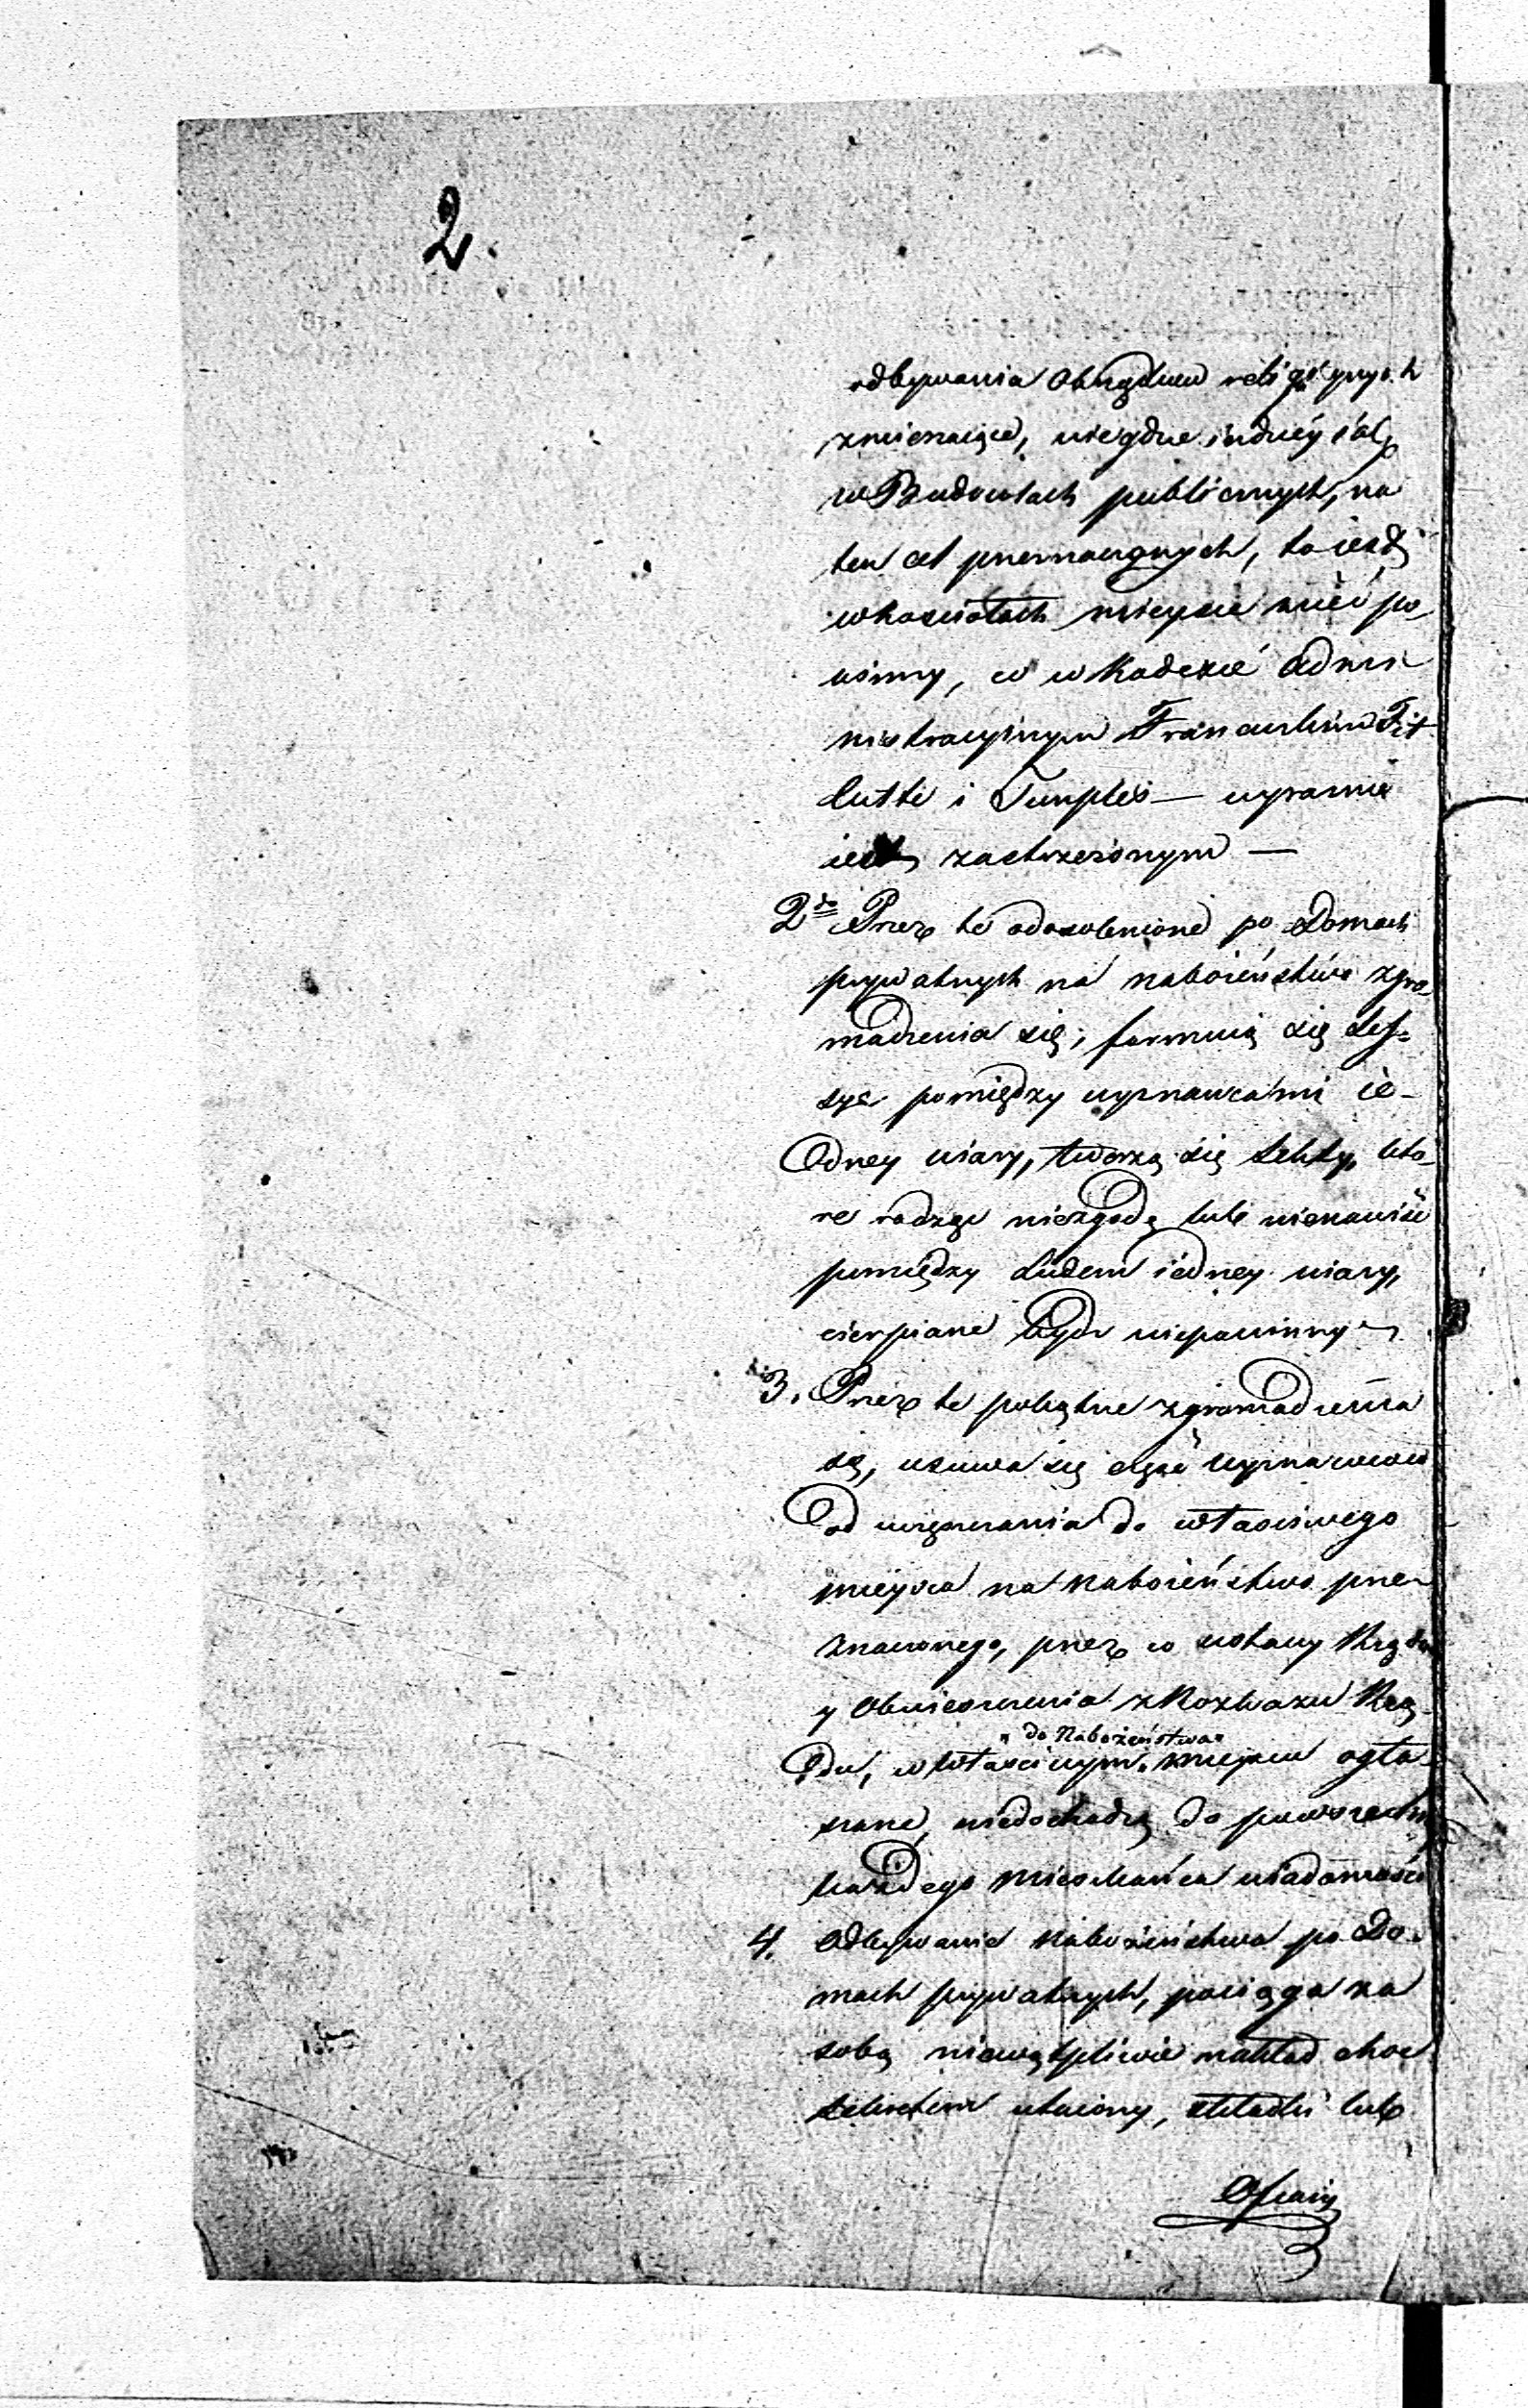 2.
odbywania Obrządków religiynych
zmierzaiące, niegdzie indziéy iak
w Budowlach publicznych, na
ten cel przeznaczonych, to iest
w kosciołach mieysce mieć po„
winny, co w Kodexie Admi„
nistracyinym Francuskim Tit
Culte i Temples — wyraznie
iest zastrzeżonym —
2do Przez te odosobnione po Domach
prywatnych na nabożeństwo zgro„
madzenia się, formuią się
pomiędzy wyznawcami ie„
dney wiary, tworzą się Sekty, któ„
re rodząc niezgodę lub nienawiść
pomiędzy Ludem iedney wiary,
cierpiane bydz niepowinny
3. Przez te pokątne zgromadzenia
się, usuwa się część wyznawców
od uczęszczania do właściwego
mieysca na Nabożeństwo prze„
znaczonego, przez co ustawy Rządu
y Obwieszczenia z Rozkazu Rzą„
„do Nabożeństwa„
du, w właściwym mieyscu ogła„
szane, niedochodzą do powszechn
każdego Mieszkańca wiadomości
4. Odbywanie Nabożeństwa po Do„
mach prywatnych, pociąga za
sobą niewątpliwie nakład choć
Sekretem utaiony, składki lub